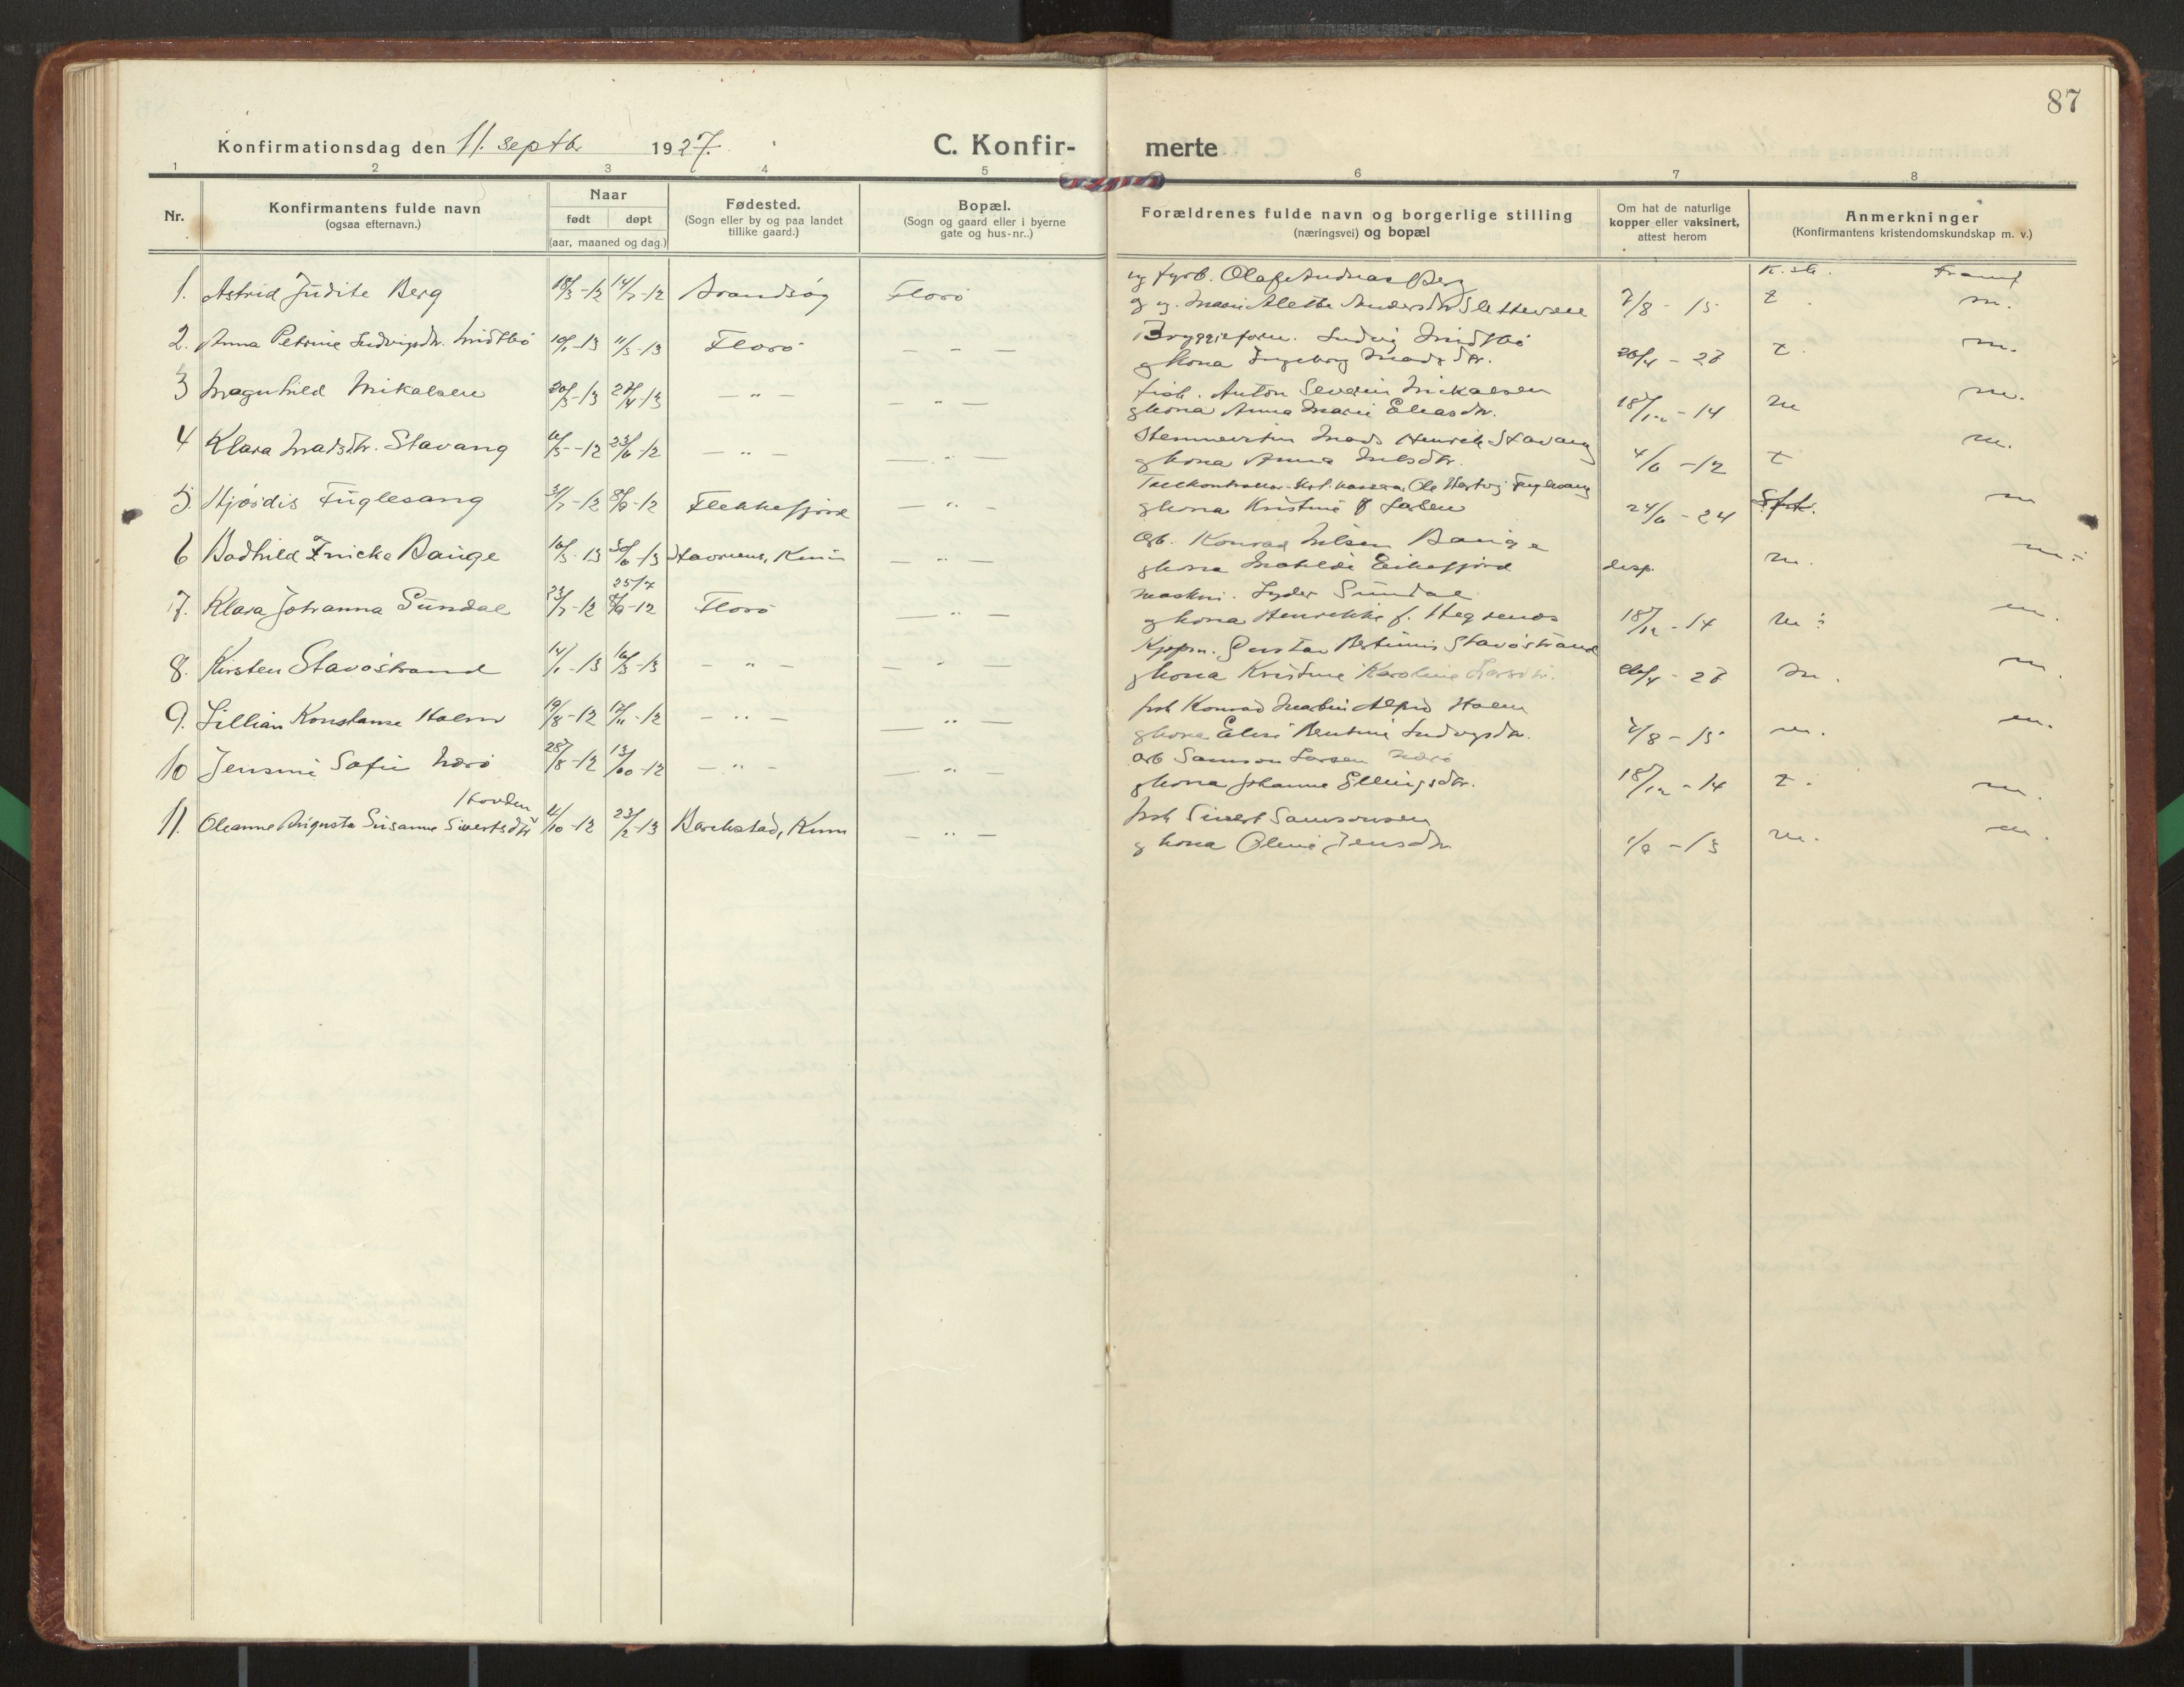 87
Konfirmationsdag den 11. septb. 1927.
C. Konfir-
merte
1 2 3 4 5 6 7 8
Nr.
Konfirmantens fulde navn
(ogsaa efternavn.)
Naar
født døpt
(aar, maaned og dag.)
Fødested.
(Sogn eller by og paa landet
tillike gaard.)
Bopæl.
(Sogn og gaard eller i byerne
gate og hus-nr..)
Forældrenes fulde navn og borgerlige stilling
(næringsvei) og bopæl
Om hat de naturlige
kopper eller vaksinert,
attest herom
Anmerkninger
(Konfirmantens kristendomskundskap m. v.)
K. sk. Framf
ug fyrb. Olaf Andreas Berg
1. Astrid Judite Berg 18/3-12 14/7-12 Florø
og ug. Marie Alette Andersdtr Slettevoll 7/8 - 15 t. m.
Bryggeform. Ludvig Midtbø
2. Anna Petrine Ludvigsdtr. Midtbø 10/1-13 11/5-13 Florø — - —
g kona Ingeborg Madsdtr. 26/4 - 23 t. m.
fisk. Anton Severin Mickalsen
3 Magnhild Mikalsen 20/3-13 27/4-13 — " — — " —
g kona Anna Marie Eliasdtr. 18/12 - 14 m m.
Mads Henrik Stavang
4 Klara Madsdtr. Stavang 23/6-12 — " — — " —
g kona Anna Nilsdtr. 4/6 - 12 t m.
Ole Hartvig Fuglesang
5. Hjørdis Fuglesang 31/7-12 8/9-12 Flekkefjord — " —
g kona Kristine f Larsen 24/6 - 24 m
arb. Konrad Nilsen Bauge
6 Bodhild Bauge 16/5-13 30/6-13 Kinn — " —
g kona Matilde Eikefjord disp. m. m÷
25/7
maskin. Lyder Sundal
7. Klara Johanna Sundal 23/7-12 8/9-12 Florø — " —
g kona Henrikke f. Hegrenes 18/12 - 14 m÷ m.
Kjøpm. Gustav Bertinus Stavøstrand
8. Kirsten Stavøstrand 14/1-13 16/3-13 — " — — " —
g kona Kristine Karoline Larsdtr. 26/4 - 23 m. m.
fisk Konrad Martin Alfred Holm
9. Lillian Konstanse Holm 19/8-12 17/11-12 — " — — " —
g kona Elise Bentine Ludvigsdtr. 7/8 - 15 m. m.
arb Samson Larsen Nærø
10 Jensine Sofie Nærø 28/8-12 13/10-12 — " — — " —
g kona Johanne Ellingsdtr. 18/12 - 14 t. m.
Hovden
fisk Sivert Samsonsen
11. Oleanne Augusta Susanne Sivertsdtr 23/2-13 Barekstad, Kinn — " —
g kona Oline Jensdtr. m. m.